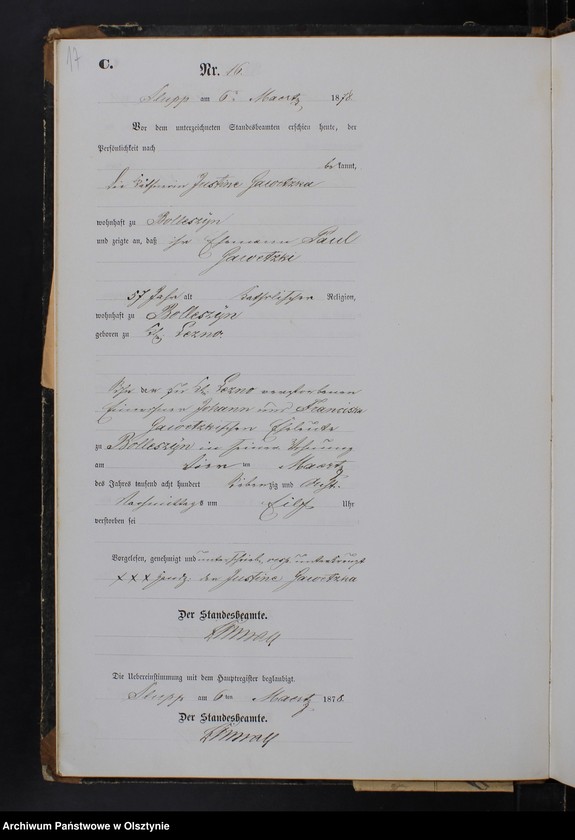 17
C.
Nr. 16.
Stupp am 6ten Maertz 1878.
Vor dem unterzeichneten Standesbeamten erschien heute, der
Persönlichkeit nach
bekannt,
die Käthnerin Justine Gawetzka
wohnhaft zu Bolleszyn
und zeigte an, daß ihr Ehemann Paul
Gawetzki
57 Jahr alt katholischer Religion,
wohnhaft zu Bolleszyn
geboren zu Kl. Lezno
Sohn der zu Kl. Lezno verstorbenen
Einwohner Johann und Francisca
Gawetzkischen Eheleute
zu Bolleszyn in seiner Wohnung
am vier ten Maertz
des Jahres tausend acht hundert siebenzig und acht
Nachmittags um Eilf Uhr
verstorben sei
Vorgelesen, genehmigt und unterschrieb. resp. unterkreuzt
xxx der Justine Gawetzka
Der Standesbeamte.
Die Uebereinstimmung mit dem Hauptregister beglaubigt.
Stupp am 6ten Maertz 1878.
Der Standesbeamte.
Archiwum Państwowe w Olsztynie